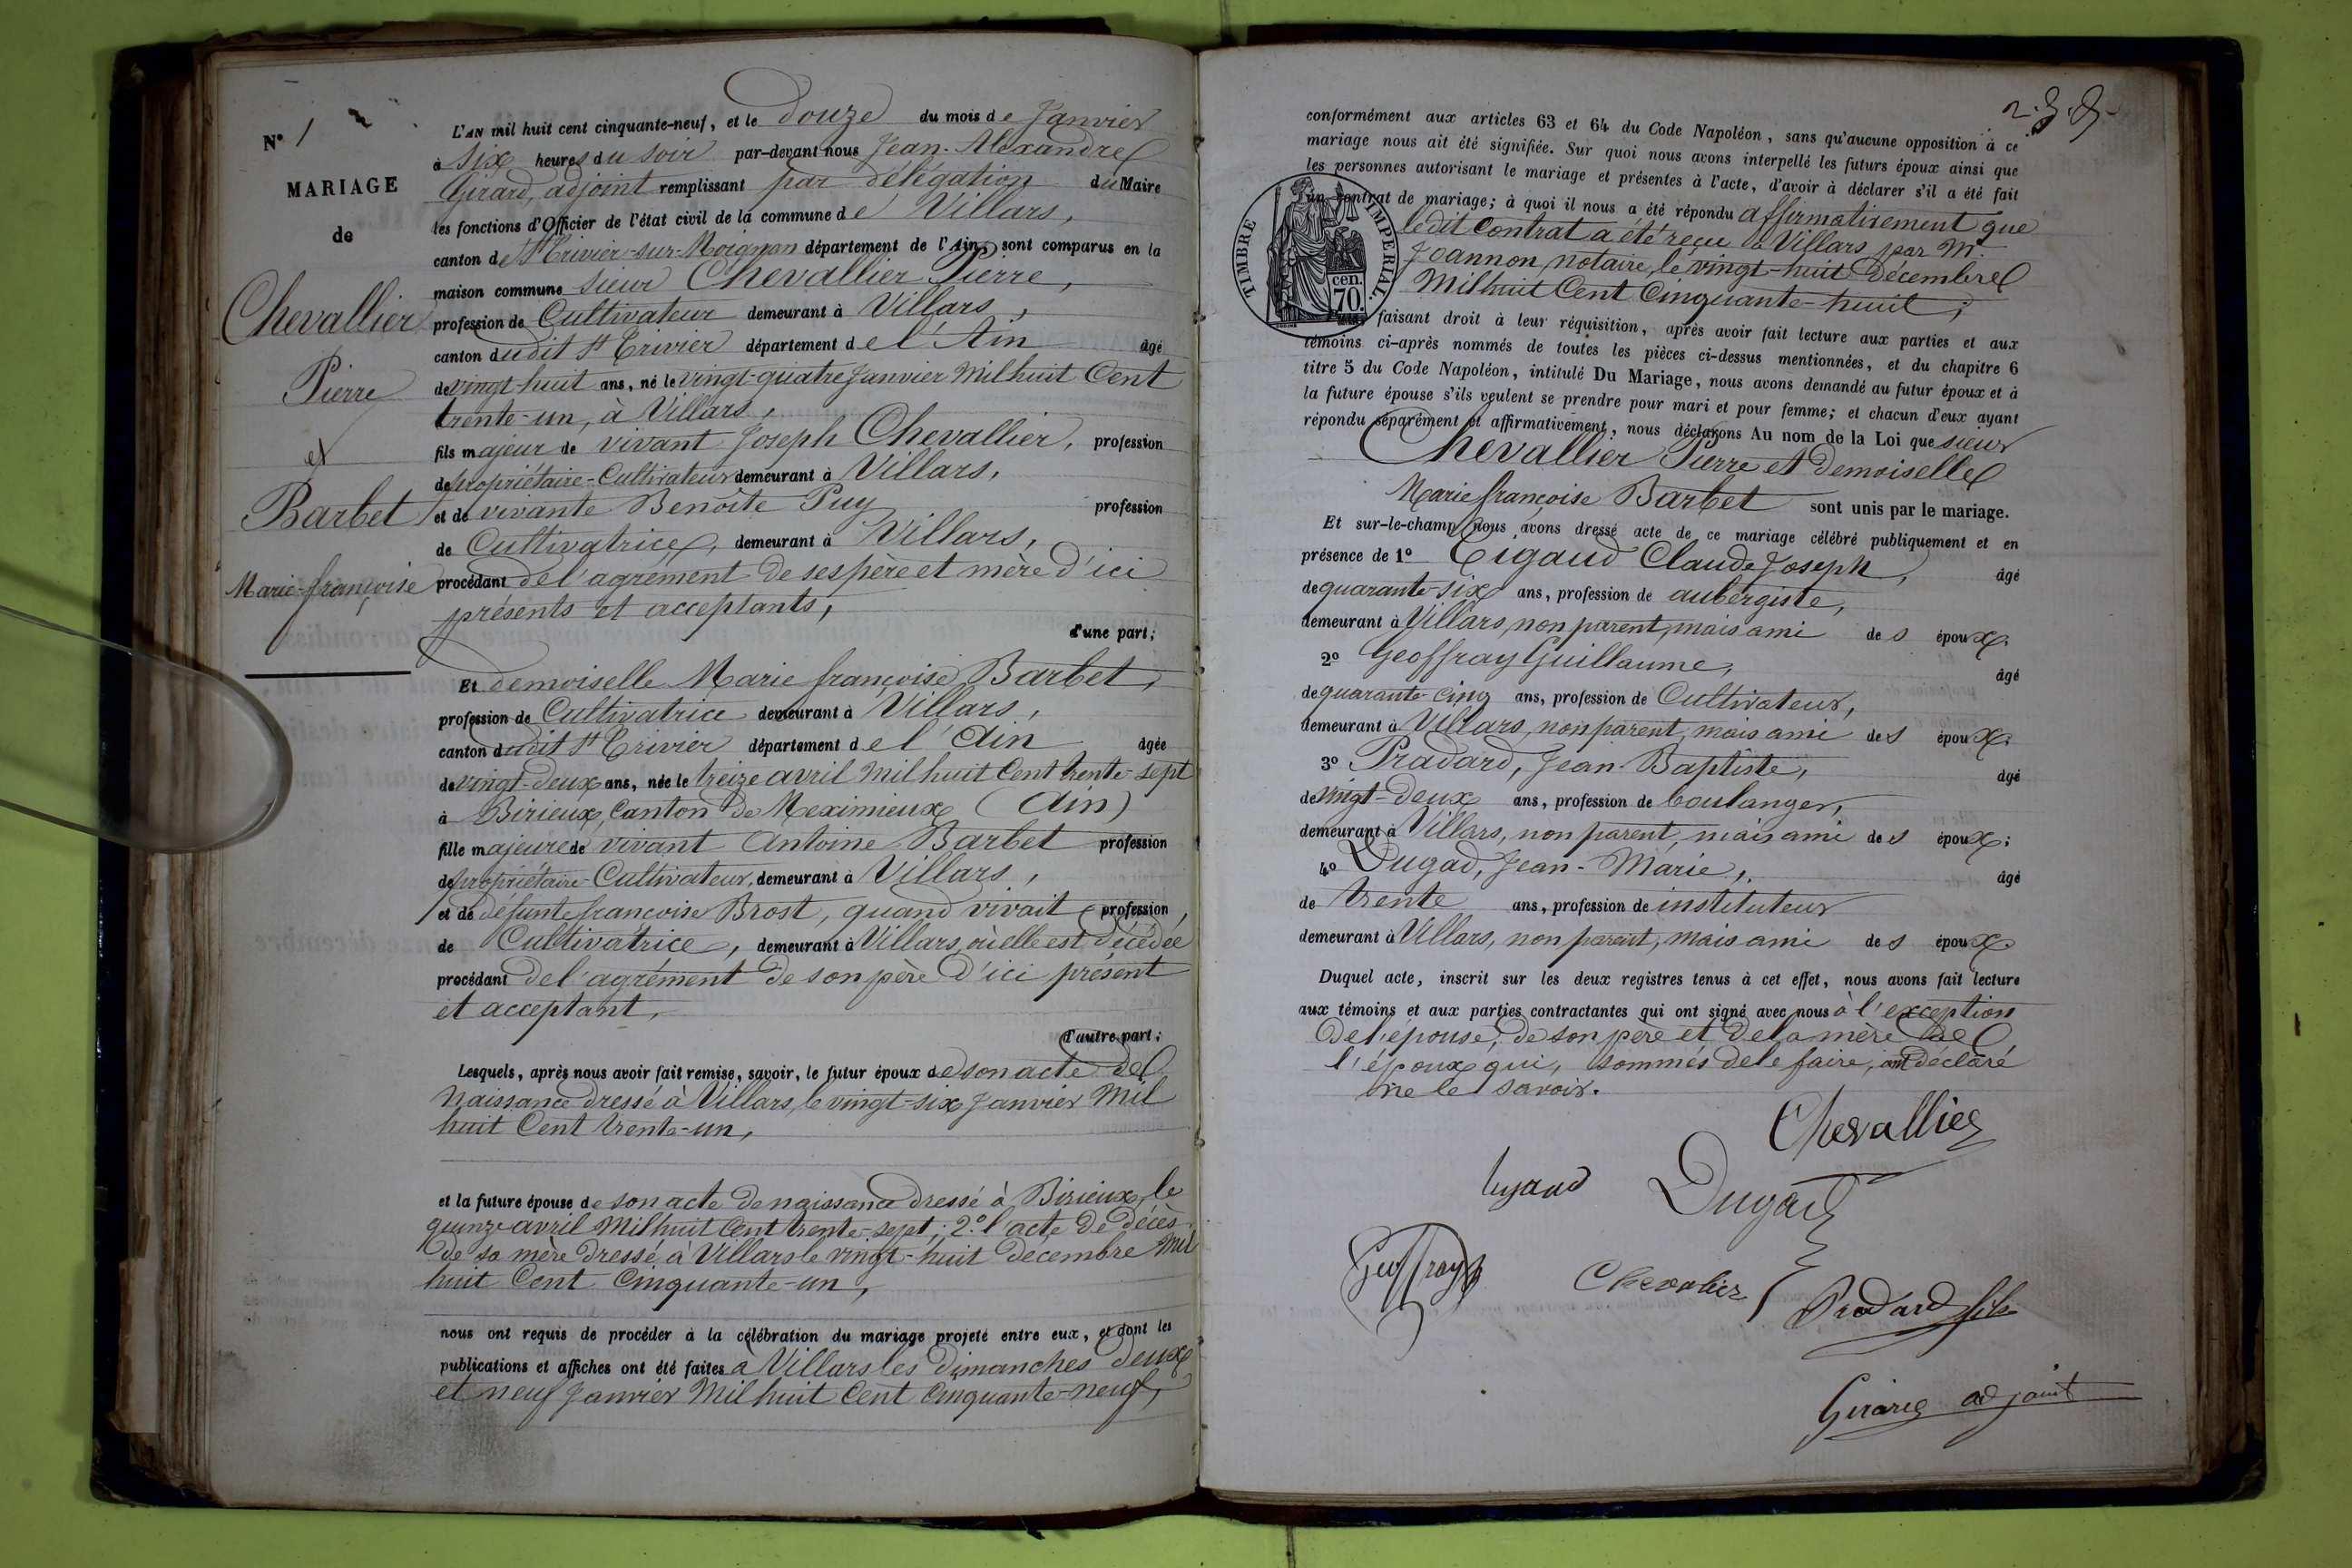 N° 1
MARIAGE
de
Chevallier
Pierre
et
Barbet
Marie-françoise
L'AN mil huit cent cinquante-neuf, et le douze du mois de Janvier
à six heures du soir par-devant nous Jean-Alexandre
Girard, adjoint remplissant par délégation du Maire
les fonctions d'Officier de l'état civil de la commune de Villars,
canton de St Trivier-sur-Moignan département de l'Ain, sont comparus en la
maison commune sieur Chevallier Pierre,
profession de Cultivateur demeurant à Villars,
canton dudit St Trivier département de l'Ain âgé
de vingt-huit ans, né le vingt-quatre Janvier Mil huit Cent
trente-un, à Villars,
fils majeur de vivant Joseph Chevallier, profession
de propriétaire-Cultivateur demeurant à Villars,
et de vivante Benoîte Puy profession
de Cultivatrice, demeurant à Villars,
procédant de l'agrément de ses père et mère d'ici
présents et acceptants,
d'une part;
Et demoiselle Marie françoise Barbet,
profession de Cultivatrice demeurant à Villars,
canton dudit St Trivier département de l'Ain âgée
de vingt-deux ans, née le treize avril Mil huit Cent trente-sept
à Birieux, Canton de Meximieux (Ain)
fille majeure de vivant Antoine Barbet profession
de propriétaire-Cultivateur, demeurant à Villars,
et de défunte françoise Brost, quand vivait profession,
de Cultivatrice, demeurant à Villars, où elle est décédée
procédant de l'agrément de son père d'ici présent
et acceptant,
d'autre part;
Lesquels, après nous avoir fait remise, savoir, le futur époux de son acte de
Naissance dressé à Villars, le vingt-six Janvier Mil
huit Cent trente-un,
et la future épouse de son acte de naissance dressé à Birieux, le
quinze avril Mil huit Cent trente-sept; 2° l'acte de décès
de sa mère dressé à Villars le vingt-huit décembre Mil
huit Cent Cinquante-un,
nous ont requis de procéder à la célébration du mariage projeté entre eux, et dont les
publications et affiches ont été faites à Villars les Dimanches deux
et neuf Janvier Mil huit Cent Cinquante-neuf,
conformément aux articles 63 et 64 du Code Napoléon, sans qu'aucune opposition à ce
mariage nous ait été signifiée. Sur quoi nous avons interpellé les futurs époux ainsi que
les personnes autorisant le mariage et présentes à l'acte, d'avoir à déclarer s'il a été fait
un contrat de mariage; à quoi il nous a été répondu affirmativement que
ledit Contrat a été reçu à Villars par M.
Joannon, notaire, le vingt-huit Décembre
Mil huit Cent Cinquante-huit;
TIMBRE IMPERIAL.
cen.
70.
faisant droit à leur réquisition, après avoir fait lecture aux parties et aux
témoins ci-après nommés de toutes les pièces ci-dessus mentionnées, et du chapitre 6
titre 5 du Code Napoléon, intitulé Du Mariage, nous avons demandé au futur époux et à
la future épouse s'ils veulent se prendre pour mari et pour femme; et chacun d'eux ayant
répondu séparément et affirmativement, nous déclarons Au nom de la Loi que sieur
Chevallier Pierre et Demoiselle
Marie françoise Barbet sont unis par le mariage.
Et sur-le-champ nous avons dressé acte de ce mariage célébré publiquement et en
présence de 1° Tigaud Claude Joseph, âgé
de quarante-six ans, profession de aubergiste,
demeurant à Villars, non parent, mais ami des époux;
2° Geoffray Guillaume, âgé
de quarante-cinq ans, profession de Cultivateur,
demeurant à Villars, non parent, mais ami des époux;
3° Pradard, Jean-Baptiste, âgé
de vingt-deux ans, profession de boulanger,
demeurant à Villars, non parent, mais ami des époux;
4° Dugad, Jean-Marie, âgé
de trente ans, profession de instituteur
demeurant à Villars, non parent, mais ami des époux.
Duquel acte, inscrit sur les deux registres tenus à cet effet, nous avons fait lecture
aux témoins et aux parties contractantes qui ont signé avec nous à l'exception
de l'épouse, de son père et de la mère de
l'époux qui, sommés de le faire, ont déclaré
ne le savoir.
Chevallier
Dugad
Geoffray
Chevalier
Pradard fils
Girard adjoint